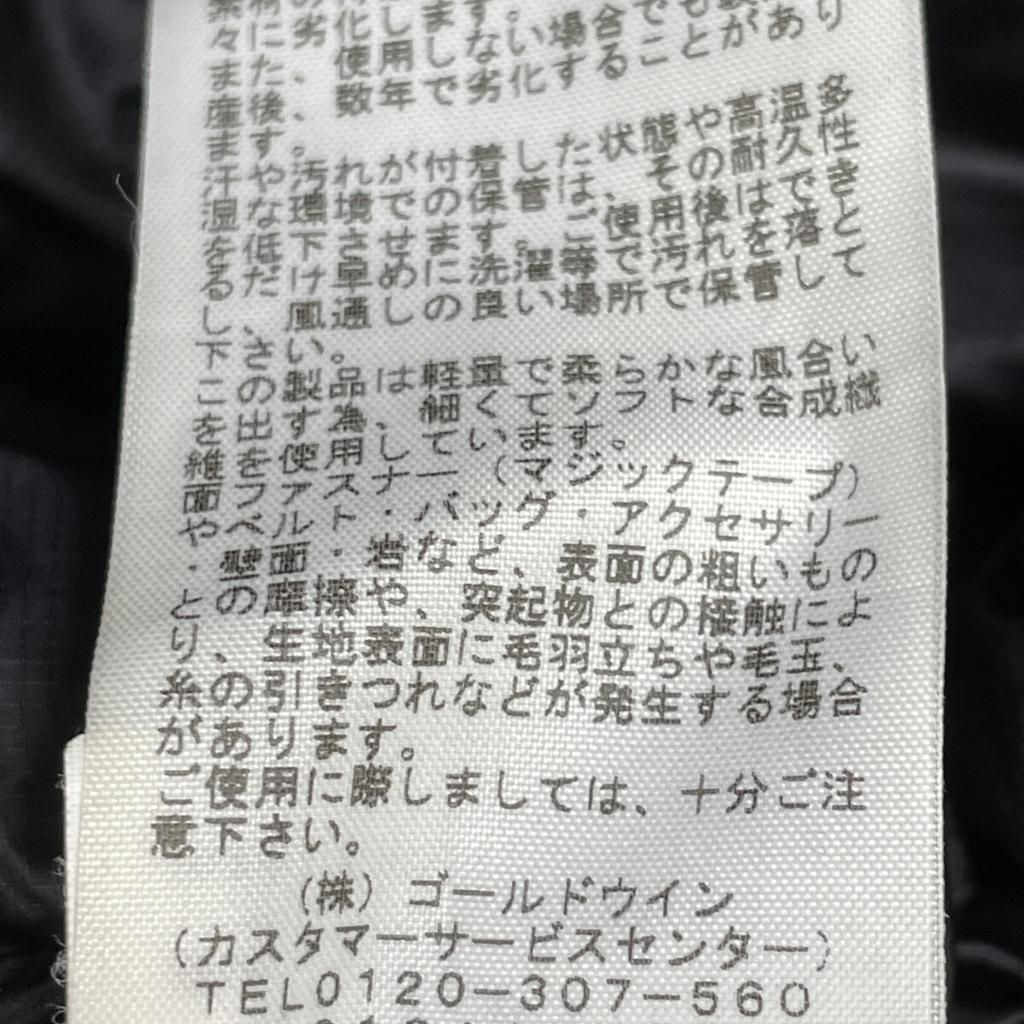 また、使用しない場合でも
産後、数年で劣化することがあり
ます。
汗や汚れが付着した状態や高温多
湿な環境での保管は、その耐久性
を低下させます。ご使用後はでき
るだけ早めに洗濯等で汚れを落と
し、風通しの良い場所で保管して
下さい。
この製品は、軽量で柔らかな風合い
を出す為、細くてソフトな合成繊
維を使用しています。
面ファスナー(マジックテープ)
やベルト・バッグ・アクセサリー
・壁面・岩など、表面の粗いもの
との摩擦や、突起物との接触によ
り、生地表面に毛羽立ちや毛玉、
糸の引きつれなどが発生する場合
があります。
ご使用に際しましては、十分ご注
意下さい。
(株)ゴールドウイン
(カスタマーサービスセンター)
TEL0120-307-560